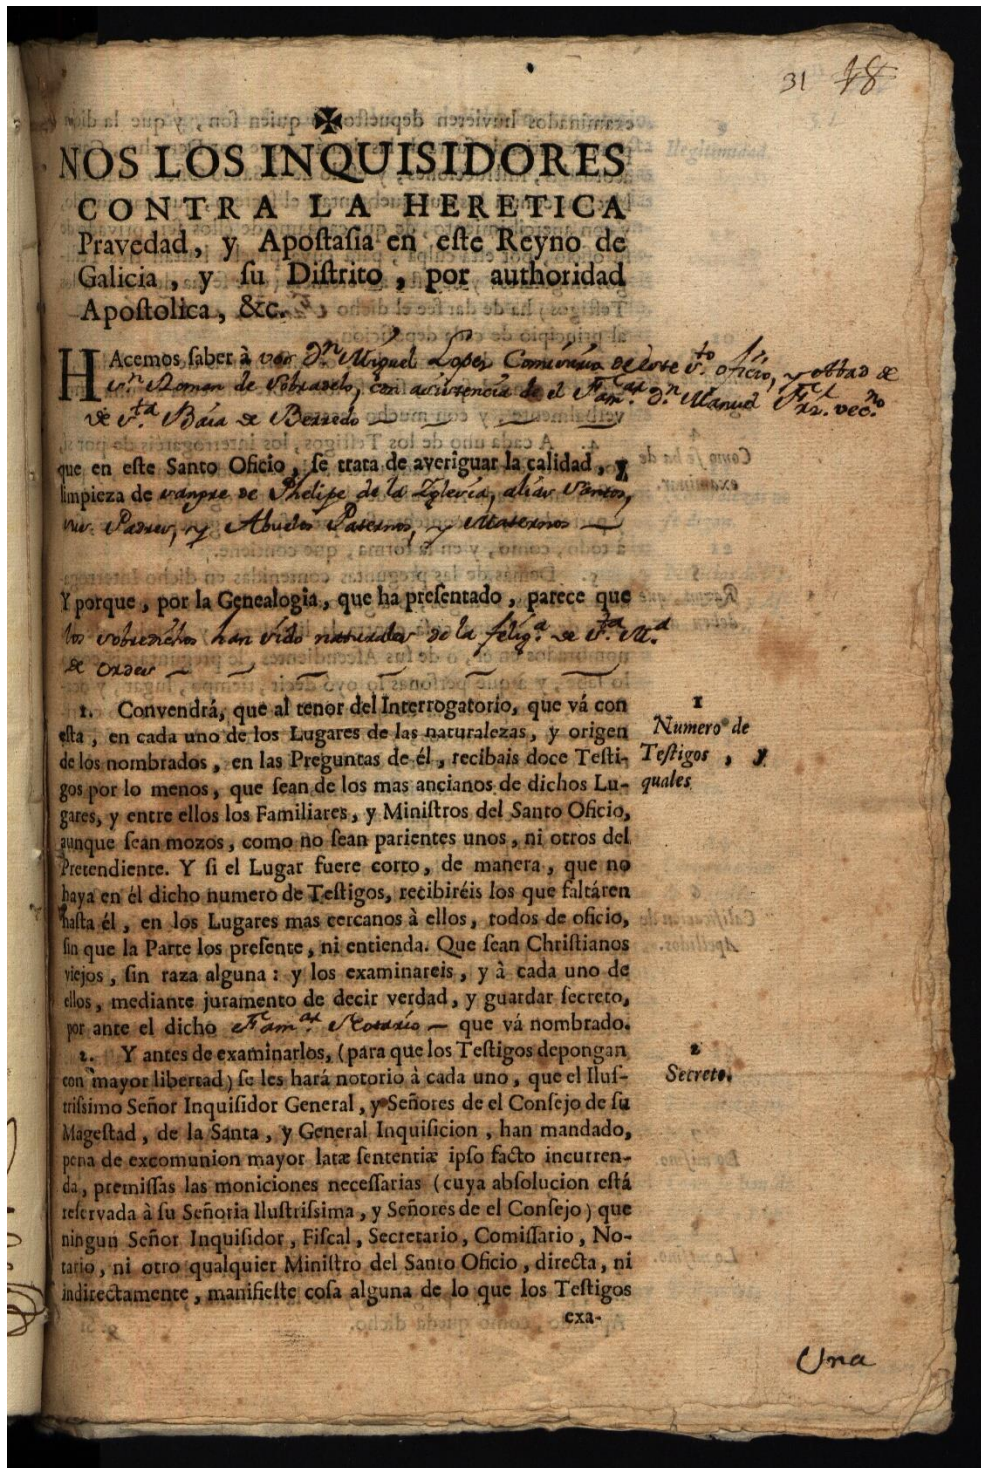 31 18
✠
NOS LOS INQUISIDORES
CONTRA LA HERETICA
Pravedad, y Apostasia en este Reyno de
Galicia, y su Distrito, por authoridad
Apostolica, &c.
HAcemos saber à vos Dn. Miguel Lopez Comisario de este Sto. oficio, y Abbad de
Sn. Roman de Sobradelo, con asistencia de el Famar. Dn. Manuel Frz. vecno.
de Sta. Baia de Berredo
que en este Santo Oficio, se trata de averiguar la calidad, y
limpieza de sangre de Phelipe de la Iglesia, alias Santos,
sus Padres, y Abuelos Paternos, y Maternos
Y porque, por la Genealogia, que ha presentado, parece que
los sobredichos han sido naturales de la feliga. de Sta. Ma.
de Ordes
1. Convendrá, que al tenor del Interrogatorio, que vá con
esta, en cada uno de los Lugares de las naturalezas, y origen
de los nombrados, en las Preguntas de él, recibais doce Testi-
gos por lo menos, que sean de los mas ancianos de dichos Lu-
gares, y entre ellos los Familiares, y Ministros del Santo Oficio,
aunque sean mozos, como no sean parientes unos, ni otros del
Pretendiente. Y si el Lugar fuere corto, de manera, que no
haya en él dicho numero de Testigos, recibiréis los que faltáren
hasta él, en los Lugares mas cercanos à ellos, todos de oficio,
sin que la Parte los presente, ni entienda. Que sean Christianos
viejos, sin raza alguna: y los examinareis, y à cada uno de
ellos, mediante juramento de decir verdad, y guardar secreto,
por ante el dicho Famar. Notario que vá nombrado.
1
Numero de
Testigos, y
quales.
2. Y antes de examinarlos, (para que los Testigos depongan
con mayor libertad) se les hará notorio à cada uno, que el Ilus-
trissimo Señor Inquisidor General, y Señores de el Consejo de su
Magestad, de la Santa, y General Inquisicion, han mandado,
pena de excomunion mayor latæ sententiæ ipso facto incurren-
da, premissas las moniciones necessarias (cuya absolucion está
reservada à su Señoria Ilustrissima, y Señores de el Consejo) que
ningun Señor Inquisidor, Fiscal, Secretario, Comissario, No-
tario, ni otro qualquier Ministro del Santo Oficio, directa, ni
indirectamente, manifieste cosa alguna de lo que los Testigos
2
Secreto.
exa-
Una